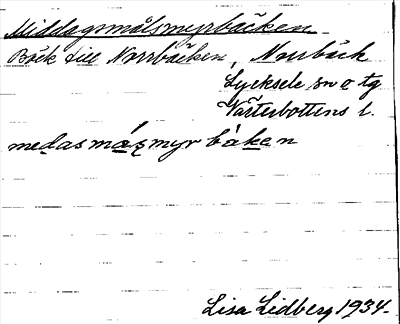 Middagsmålsmyrbäcken
Bäck till Norrbäcken, Norrbäck
Lycksele sn o tg
Västerbottens l.
medasmázmyrbàken
Lisa Lidberg 1934.